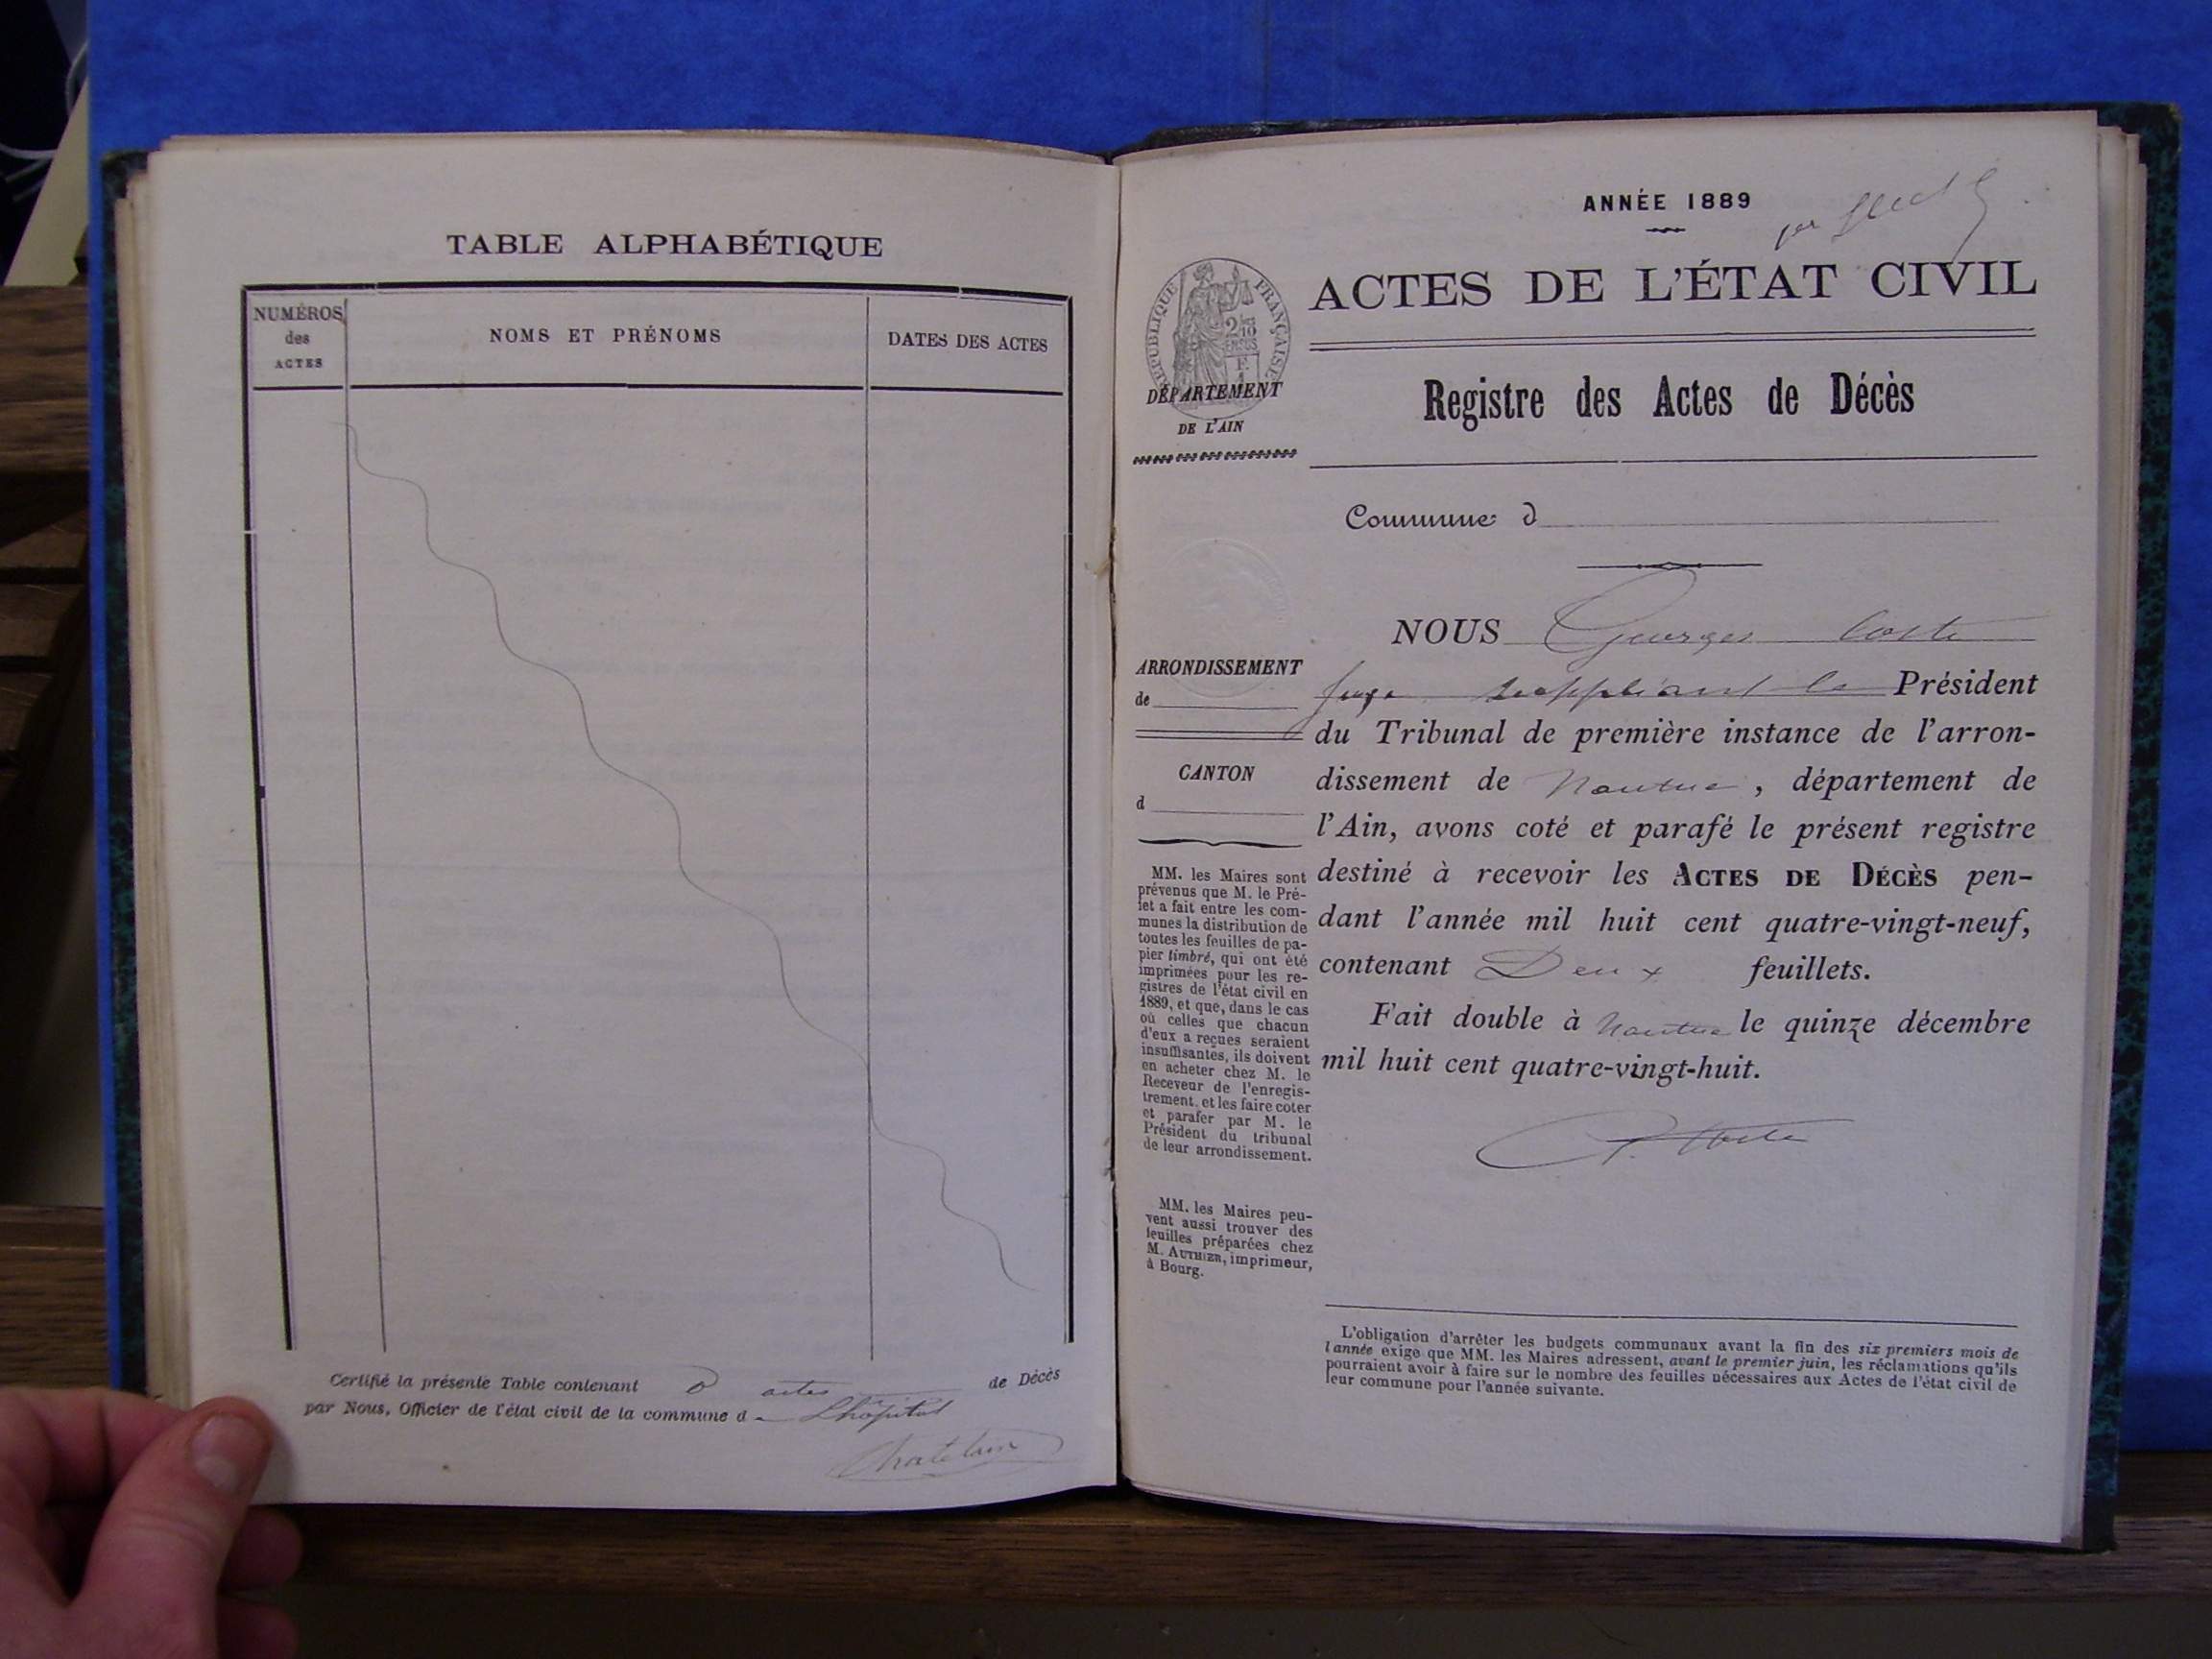 TABLE ALPHABÉTIQUE
NUMÉROS
des
ACTES
NOMS ET PRÉNOMS
DATES DES ACTES
Certifié la présente Table contenant 0 actes de Décès
par Nous, Officier de l'état civil de la commune de Lhôpital
Chatelain
ANNÉE 1889
ACTES DE L'ÉTAT CIVIL
RÉPUBLIQUE FRANÇAISE
2/10
EN SUS
DÉPARTEMENT
DE L'AIN
Registre des Actes de Décès
Commune d
NOUS Georges Coste
ARRONDISSEMENT
de
CANTON
d
juge suppléant le Président
du Tribunal de première instance de l'arron-
dissement de Nantua, département de
l'Ain, avons coté et parafé le présent registre
destiné à recevoir les ACTES DE DÉCÈS pen-
dant l'année mil huit cent quatre-vingt-neuf,
contenant Deux feuillets.
Fait double à Nantua le quinze décembre
mil huit cent quatre-vingt-huit.
G. Coste
MM. les Maires sont
prévenus que M. le Pré-
fet a fait entre les com-
munes la distribution de
toutes les feuilles de pa-
pier timbré, qui ont été
imprimées pour les re-
gistres de l'état civil en
1889, et que, dans le cas
où celles que chacun
d'eux a reçues seraient
insuffisantes, ils doivent
en acheter chez M. le
Receveur de l'enregis-
trement, et les faire coter
et parafer par M. le
Président du tribunal
de leur arrondissement.
MM. les Maires peu-
vent aussi trouver des
feuilles préparées chez
M. AUTHIER, imprimeur,
à Bourg.
L'obligation d'arrêter les budgets communaux avant la fin des six premiers mois de
l'année exige que MM. les Maires adressent, avant le premier juin, les réclamations qu'ils
pourraient avoir à faire sur le nombre des feuilles nécessaires aux Actes de l'état civil de
leur commune pour l'année suivante.